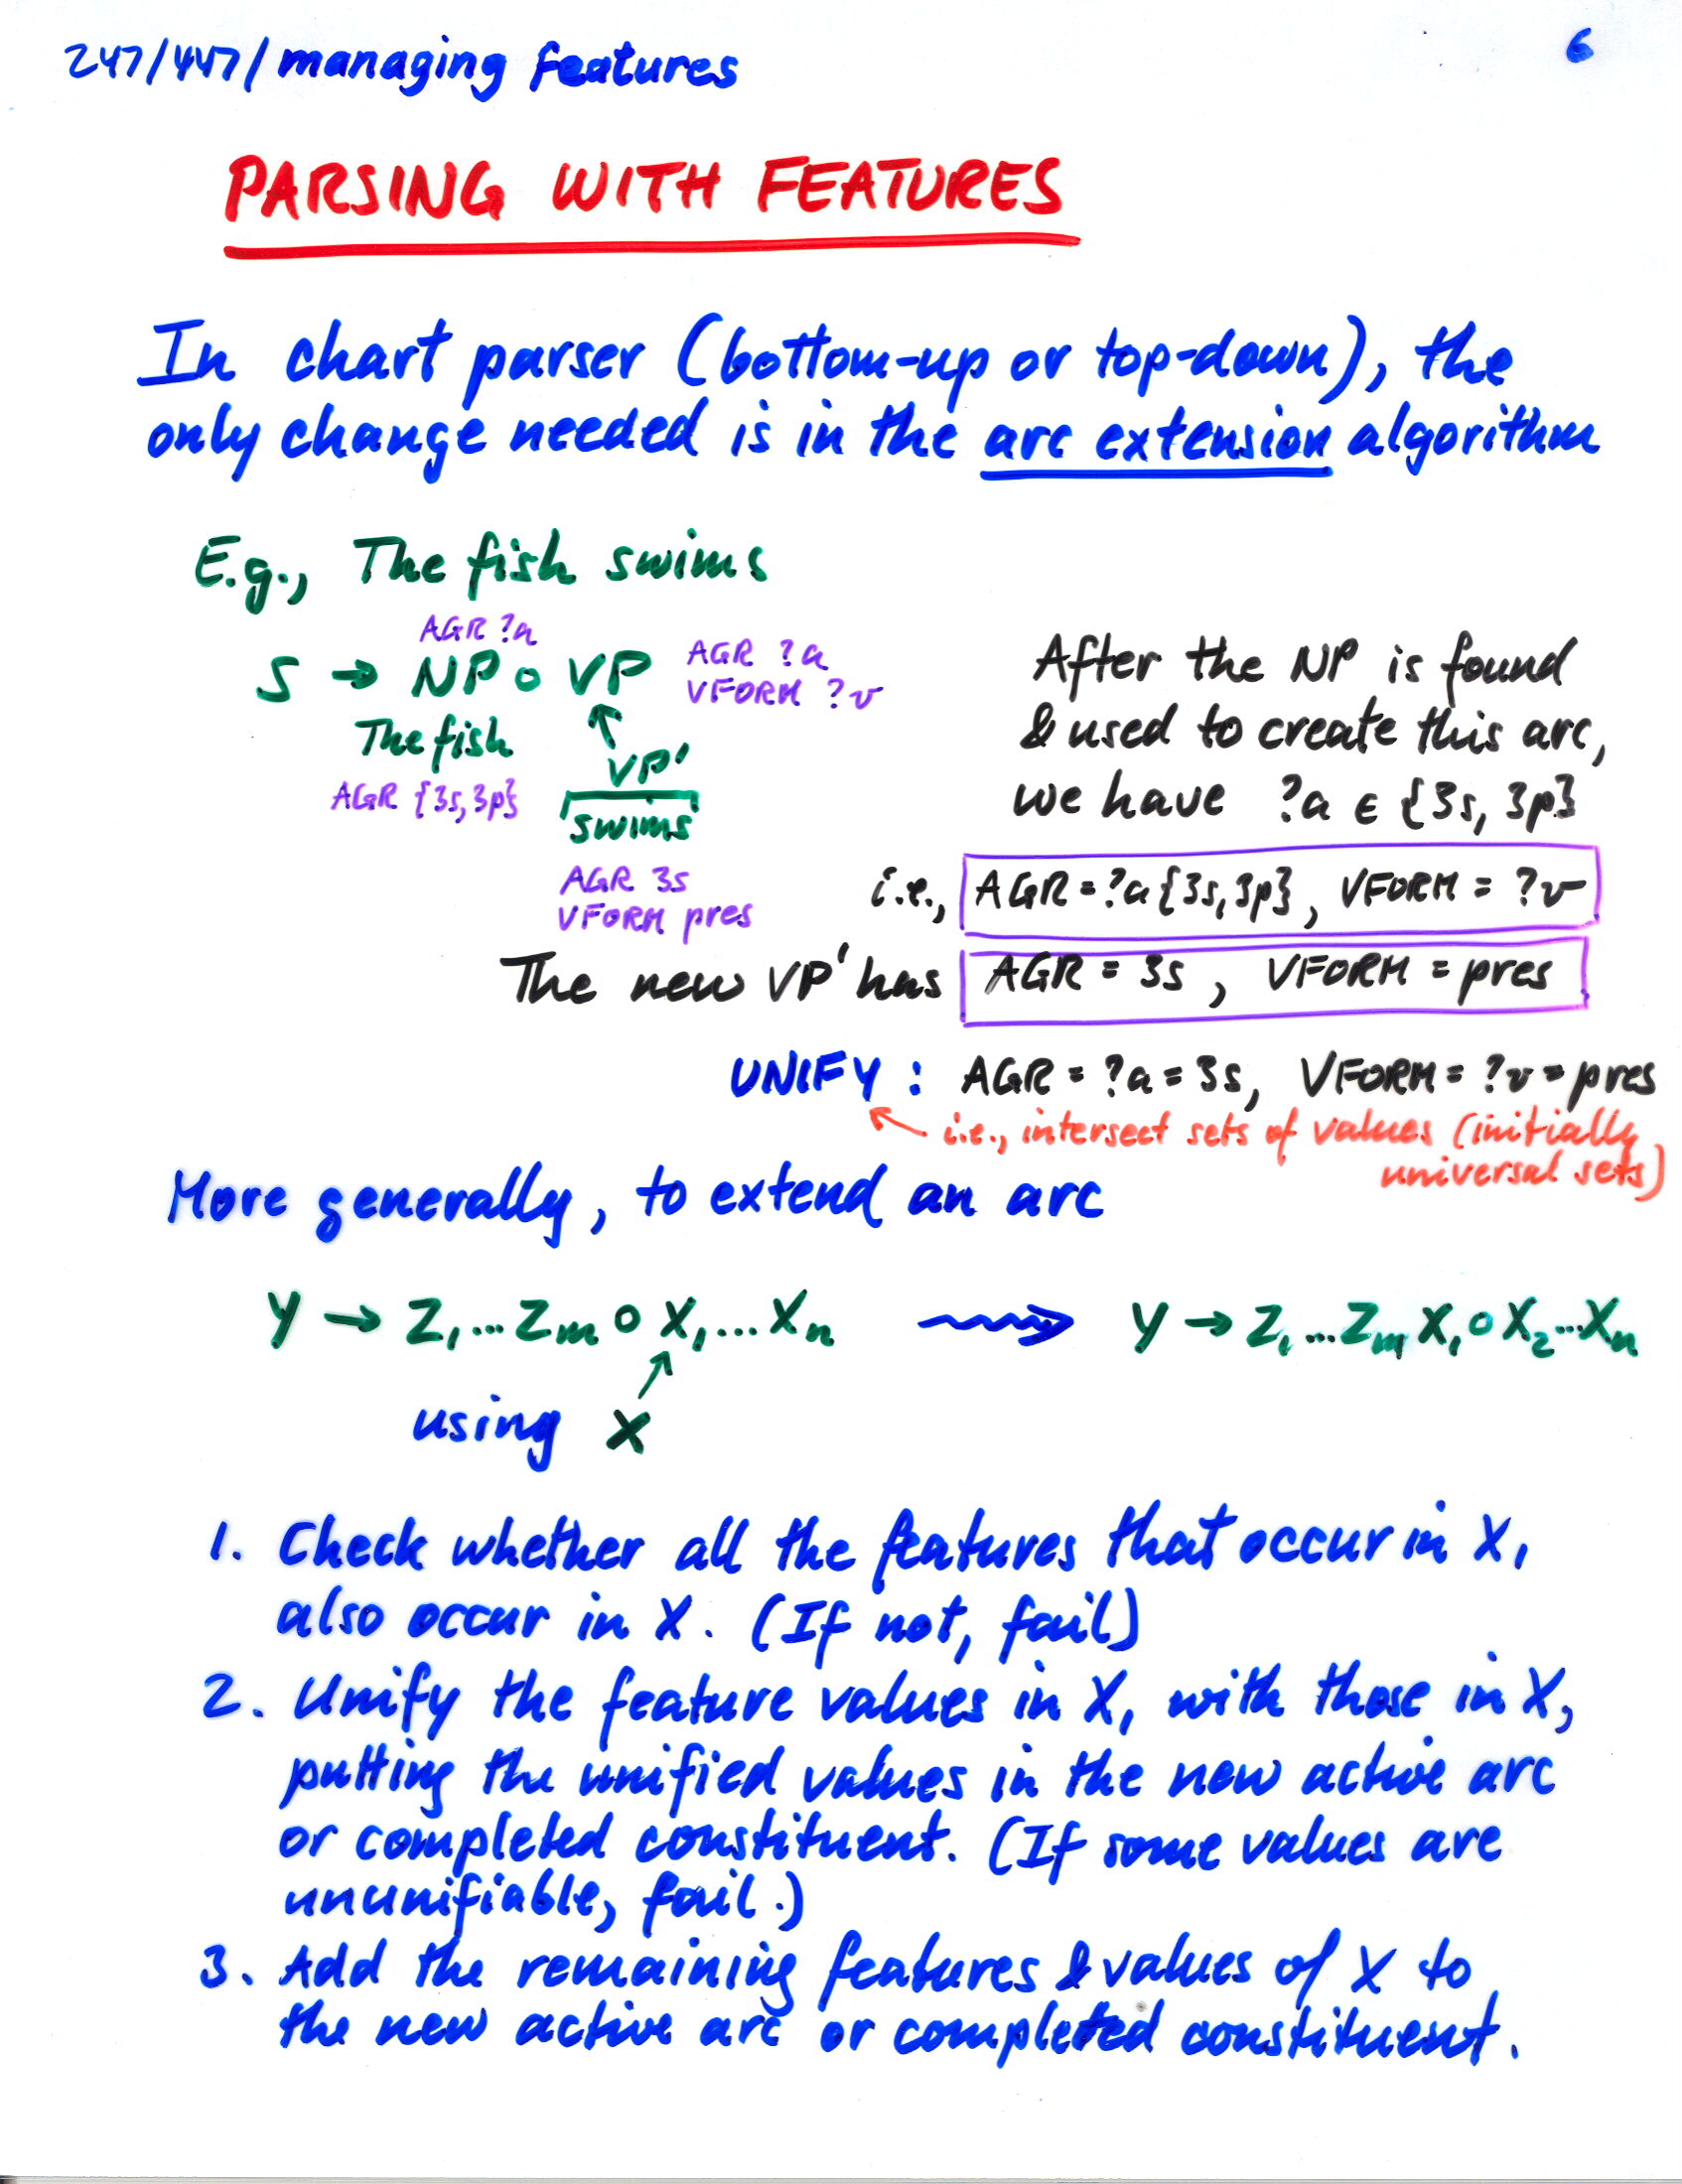 247/447/managing features
6
PARSING WITH FEATURES
In chart parser (bottom-up or top-down), the
only change needed is in the arc extension algorithm
E.g., The fish swims
AGR ?a
S → NP o VP
AGR ?a
VFORM ?v
The fish
AGR {3s, 3p}
VP'
swims
AGR 3s
VFORM pres
After the NP is found
& used to create this arc,
we have ?a ∈ {3s, 3p}
i.e., AGR = ?a {3s, 3p}, VFORM = ?v
The new VP' has AGR = 3s, VFORM = pres
UNIFY: AGR = ?a = 3s, VFORM = ?v = pres
i.e., intersect sets of values (initially
universal sets)
More generally, to extend an arc
Y → Z₁...Zₘ o X₁...Xₙ ⇝ Y → Z₁...Zₘ X₁ o X₂...Xₙ
using X
1. Check whether all the features that occur in X₁
also occur in X. (If not, fail)
2. Unify the feature values in X₁ with those in X,
putting the unified values in the new active arc
or completed constituent. (If some values are
ununifiable, fail.)
3. Add the remaining features & values of X to
the new active arc or completed constituent.